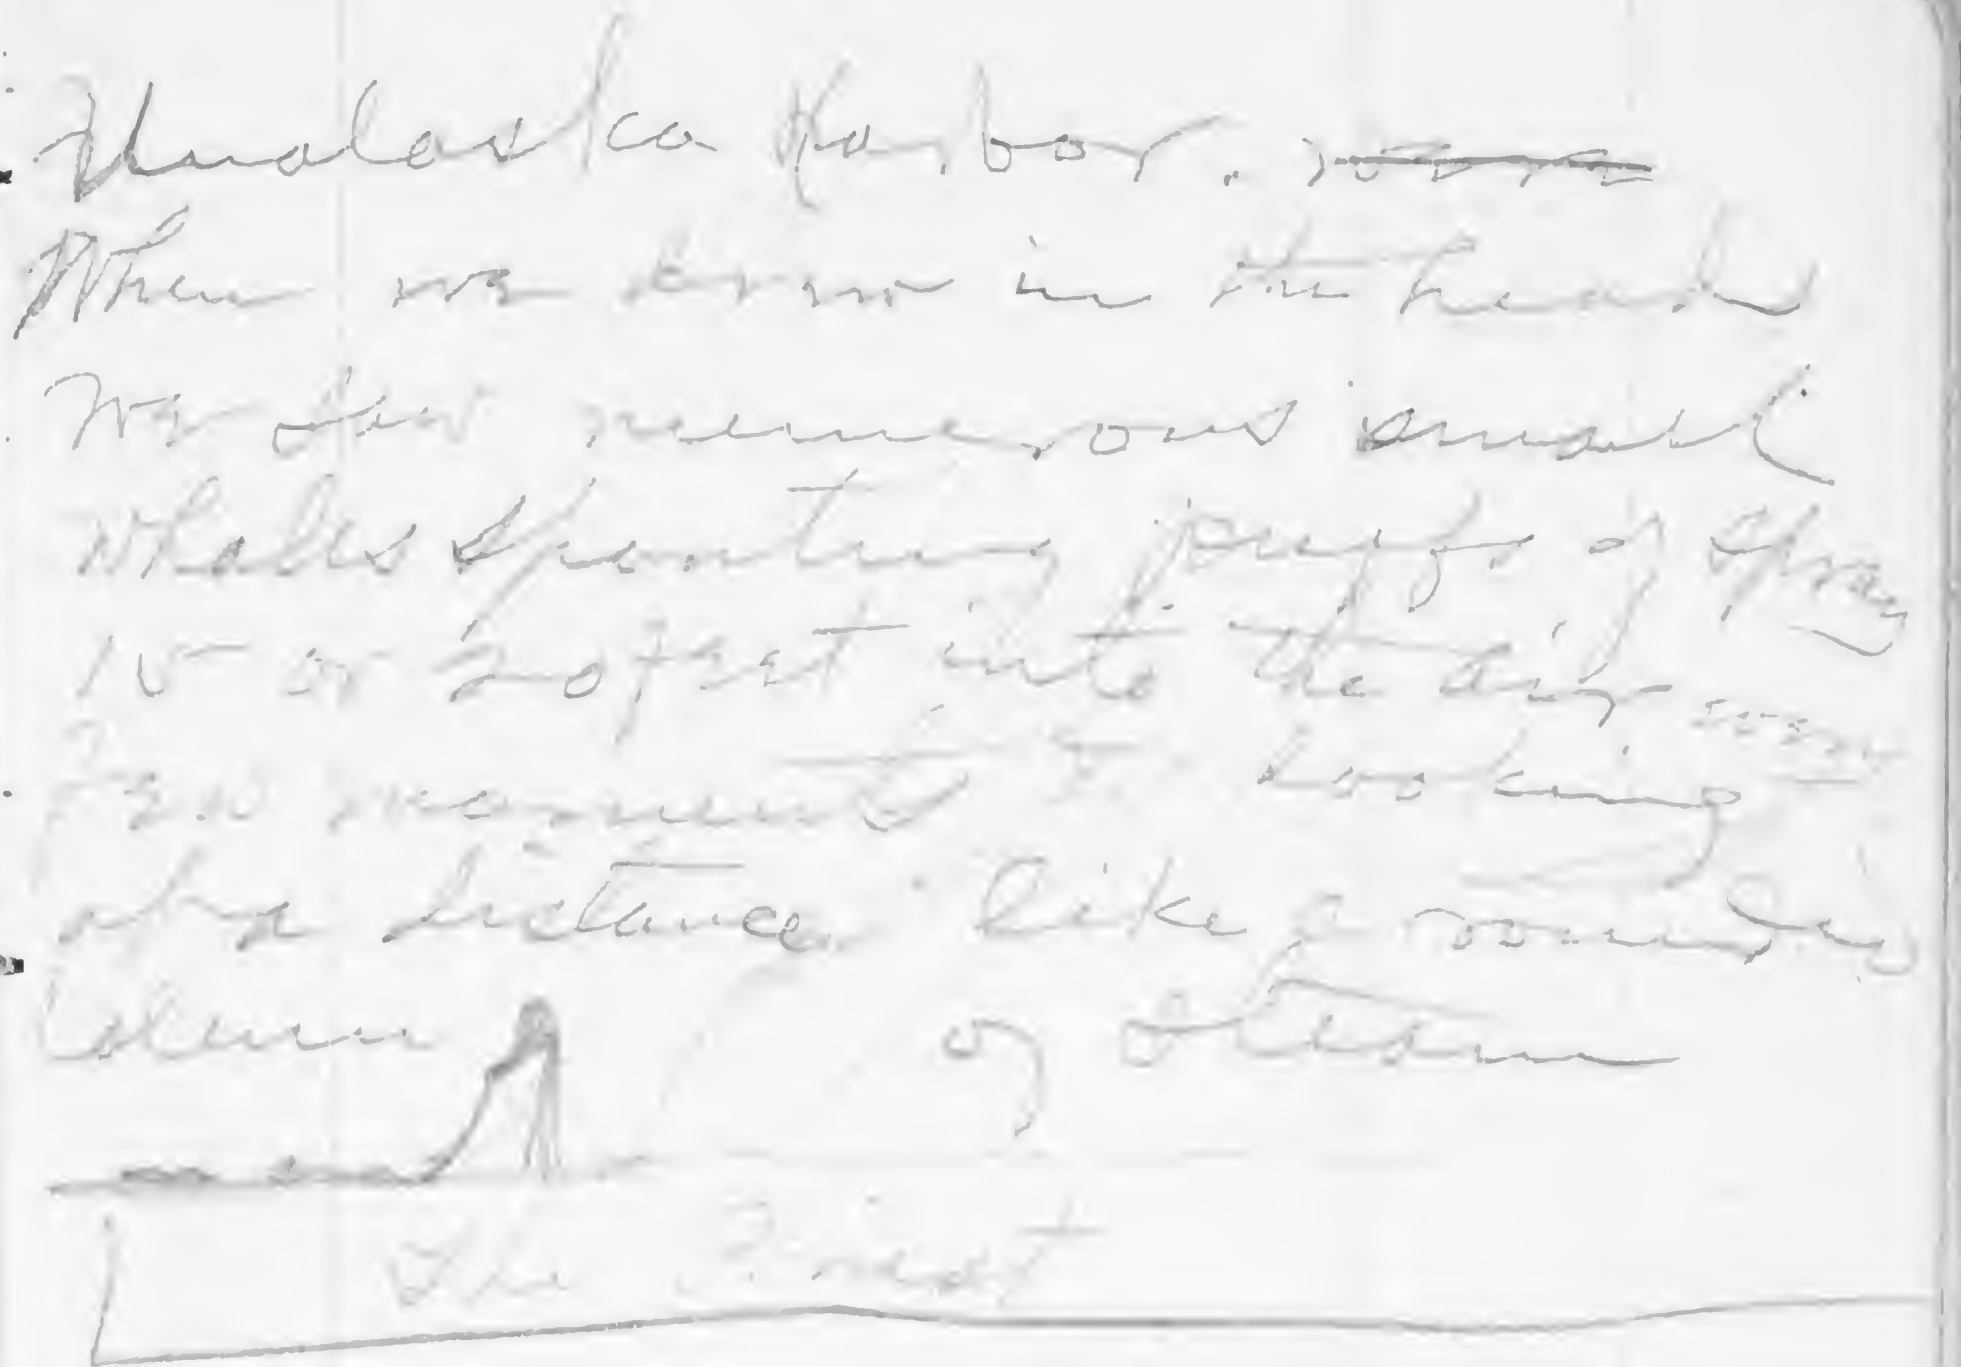 Unalaska Harbor.
When we drew in the heads
We saw numerous small
whales spouting puffs of spray
15 or 20 feet into the air every
Few moments &amp; looking
at a distance like a rounded
Colum of steam
The Priest